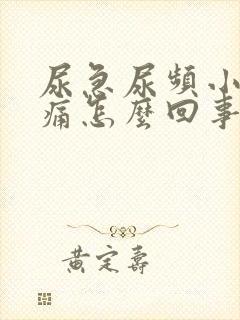 尿急尿頻小
痛怎麼回事
黃定壽